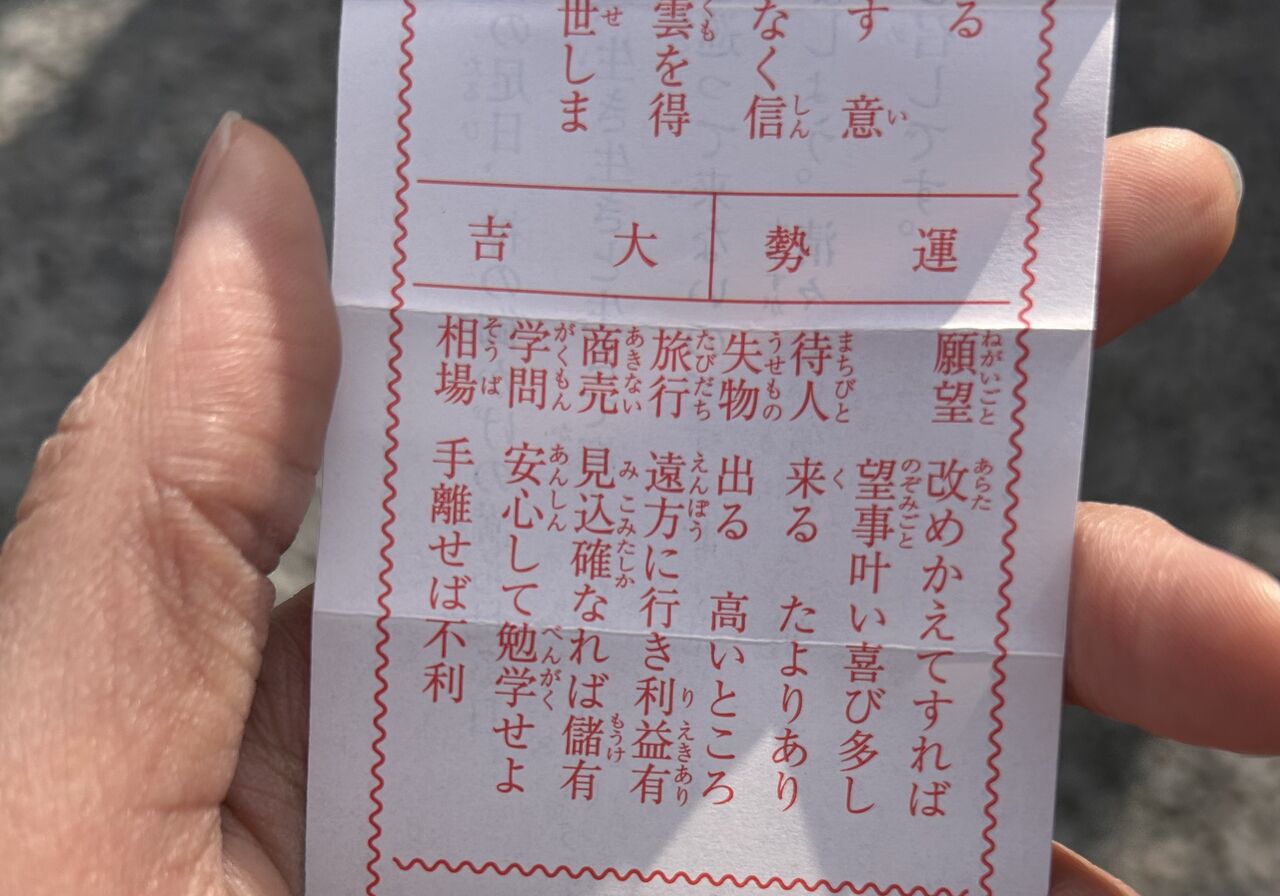 る
す意
なく信
雲を得
世しま
運勢
大吉
願望 改めかえてすれば
望事叶い喜び多し
待人 来る たよりあり
失物 出る 高いところ
旅行 遠方に行き利益有
商売 見込確なれば儲有
学問 安心して勉学せよ
相場 手離せば不利